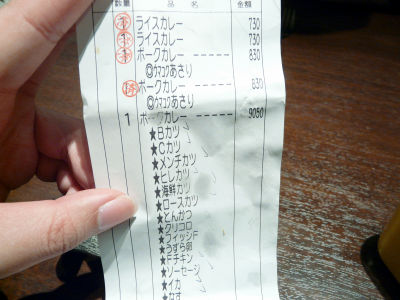 数量 品名 金額
1 ライスカレー 730
1 ライスカレー 730
1 ポークカレー ------ 830
◎ウマコクあさり
1 ポークカレー ------ 830
◎ウマコクあさり
1 ポークカレー ------ 9050
★Bカツ
★Cカツ
★メンチカツ
★ヒレカツ
★海鮮カツ
★ロースカツ
★とんかつ
★クリコロ
★フィッシF
★うずら卵
★Fチキン
★ソーセージ
★イカ
★なす